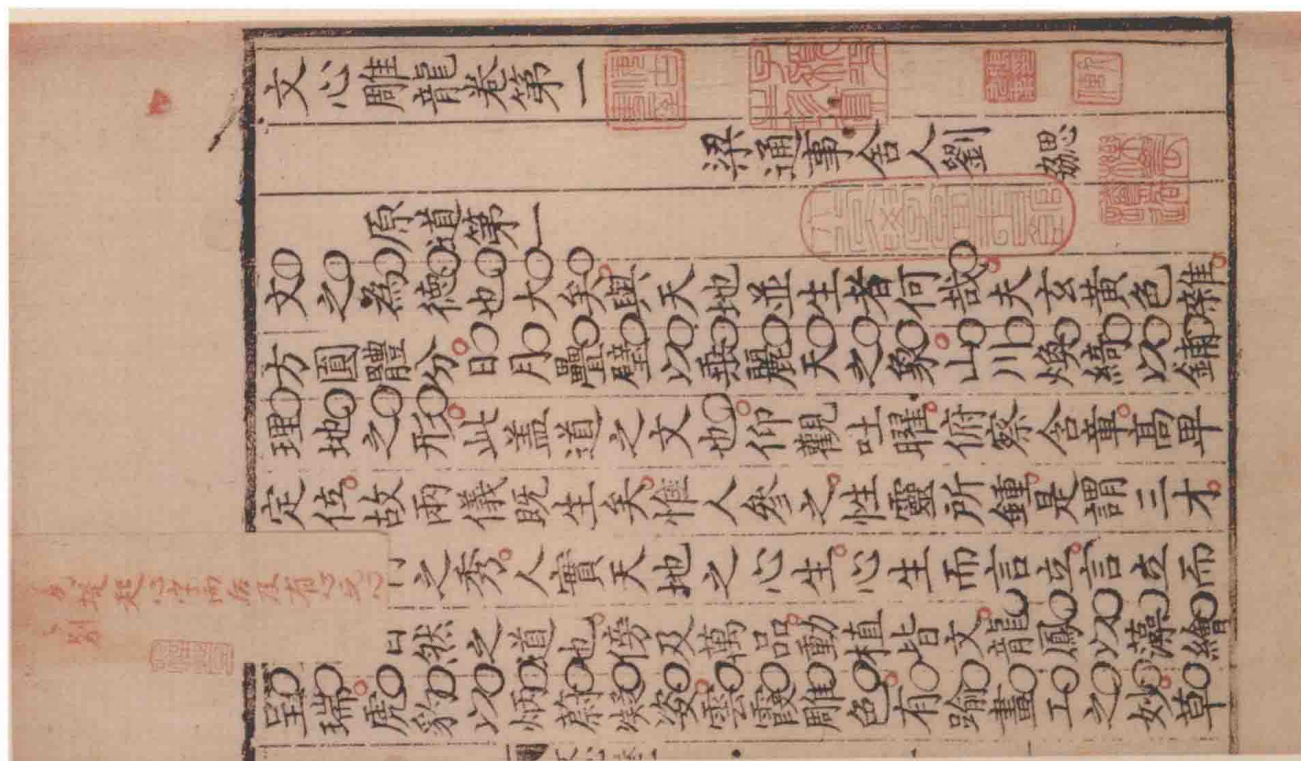 文心雕龍卷第一
梁通事舍人劉勰
原道第一
文之為德也大矣與天地並生者何哉夫玄黃色雜
方圓體分日月疊璧以垂麗天之象山川煥綺以鋪
理地之形此盖道之文也仰觀吐曜俯察含章高卑
定位故兩儀既生矣惟人參之性靈所鍾是謂三才
之秀人實天地之心生心生而言立言立而
然之道也傍及萬品動植皆文龍鳳以藻繪
呈瑞虎豹以炳蔚凝姿雲霞雕色有踰畫工之妙草